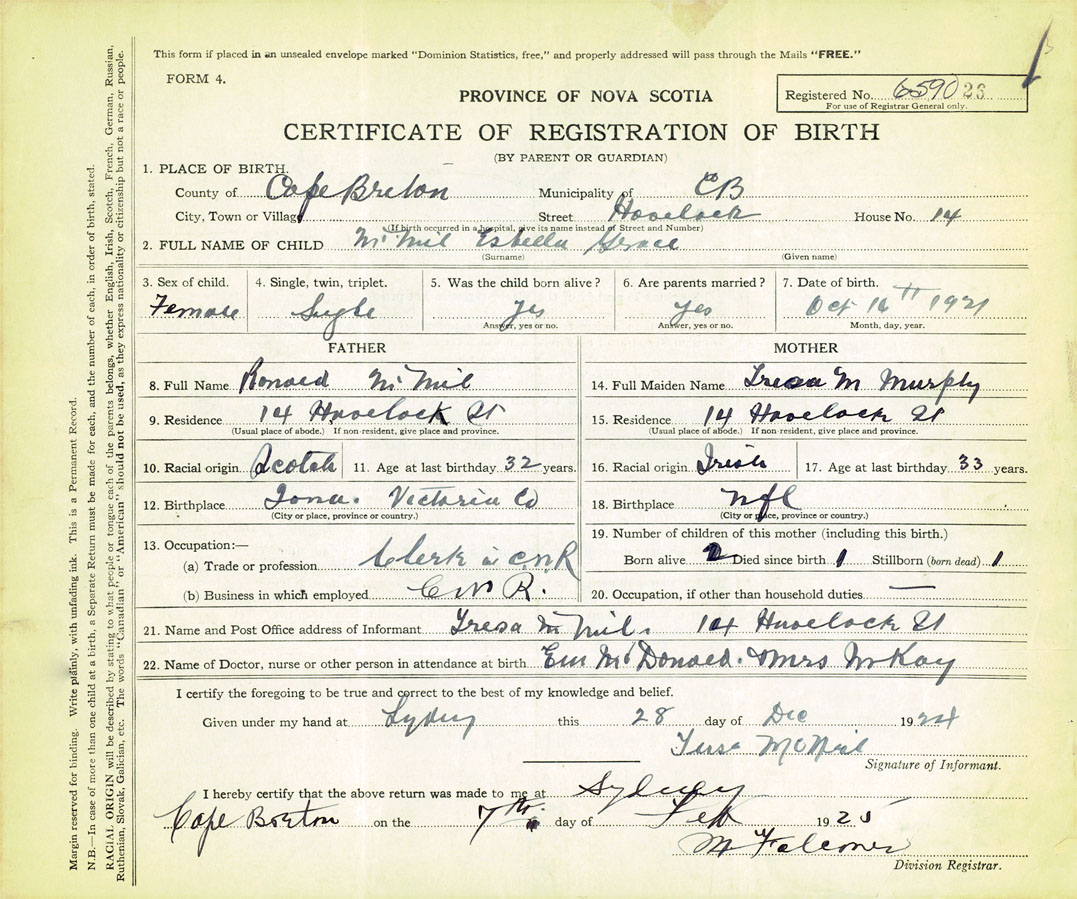 This form if placed in an unsealed envelope marked “Dominion Statistics, free,” and properly addressed will pass through the Mails “FREE.”
FORM 4.
Registered No. 6590 23
For use of Registrar General only.
PROVINCE OF NOVA SCOTIA
CERTIFICATE OF REGISTRATION OF BIRTH
(BY PARENT OR GUARDIAN)
1. PLACE OF BIRTH.
County of Cape Breton Municipality of CB
City, Town or Village Street Havelock House No. 14
(If birth occurred in a hospital, give its name instead of Street and Number)
2. FULL NAME OF CHILD McNeil Estella Grace
(Surname) (Given name)
3. Sex of child. 4. Single, twin, triplet. 5. Was the child born alive? 6. Are parents married? 7. Date of birth.
Female Single Yes Yes Oct 16th
Answer, yes or no. Answer, yes or no. Month, day, year.
FATHER MOTHER
8. Full Name Ronald McNeil 14. Full Maiden Name Tresa M Murphy
9. Residence 14 Havelock St 15. Residence 14 Havelock St
(Usual place of abode.) If non-resident, give place and province. (Usual place of abode.) If non-resident, give place and province.
10. Racial origin Scotch 11. Age at last birthday 32 years. 16. Racial origin Irish 17. Age at last birthday 33 years.
12. Birthplace Iona. Victoria Co 18. Birthplace Nfl
(City or place, province or country.) (City or place, province or country.)
13. Occupation:— 19. Number of children of this mother (including this birth.)
(a) Trade or profession Clerk in C.N.R Born alive 2 Died since birth 1 Stillborn (born dead) 1
(b) Business in which employed C N R. 20. Occupation, if other than household duties —
21. Name and Post Office address of Informant Tresa McNeil. 14 Havelock St
22. Name of Doctor, nurse or other person in attendance at birth McDonald. & Mrs McKay
I certify the foregoing to be true and correct to the best of my knowledge and belief.
Given under my hand at Sydney this 28 day of Dec 1924
McNeil
Signature of Informant.
I hereby certify that the above return was made to me at Sydney
Cape Breton on the 7th day of Feb 1925
M Falconer
Division Registrar.
Margin reserved for binding. Write plainly, with unfading ink. This is a Permanent Record.
N.B.—In case of more than one child at a birth, a Separate Return must be made for each, and the number of each, in order of birth, stated.
RACIAL ORIGIN will be described by stating to what people or tongue each of the parents belongs, whether English, Irish, Scotch, French, German, Russian,
Ruthenian, Slovak, Galician, etc. The words “Canadian” or “American” should not be used, as they express nationality or citizenship but not a race or people.